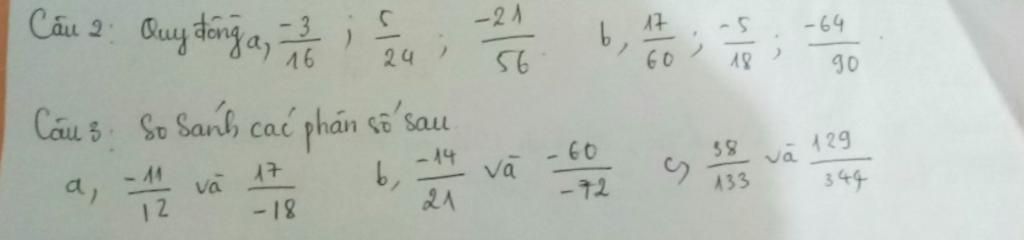 Câu 2: Quy đồng a, -3/16 ; 5/24 ; -21/56. b, 17/60 ; -5/18 ; -64/90.
Câu 3: So sánh các phân số sau.
a, -11/12 và 17/-18 b, -14/21 và -60/-72 c, 38/133 và 129/344